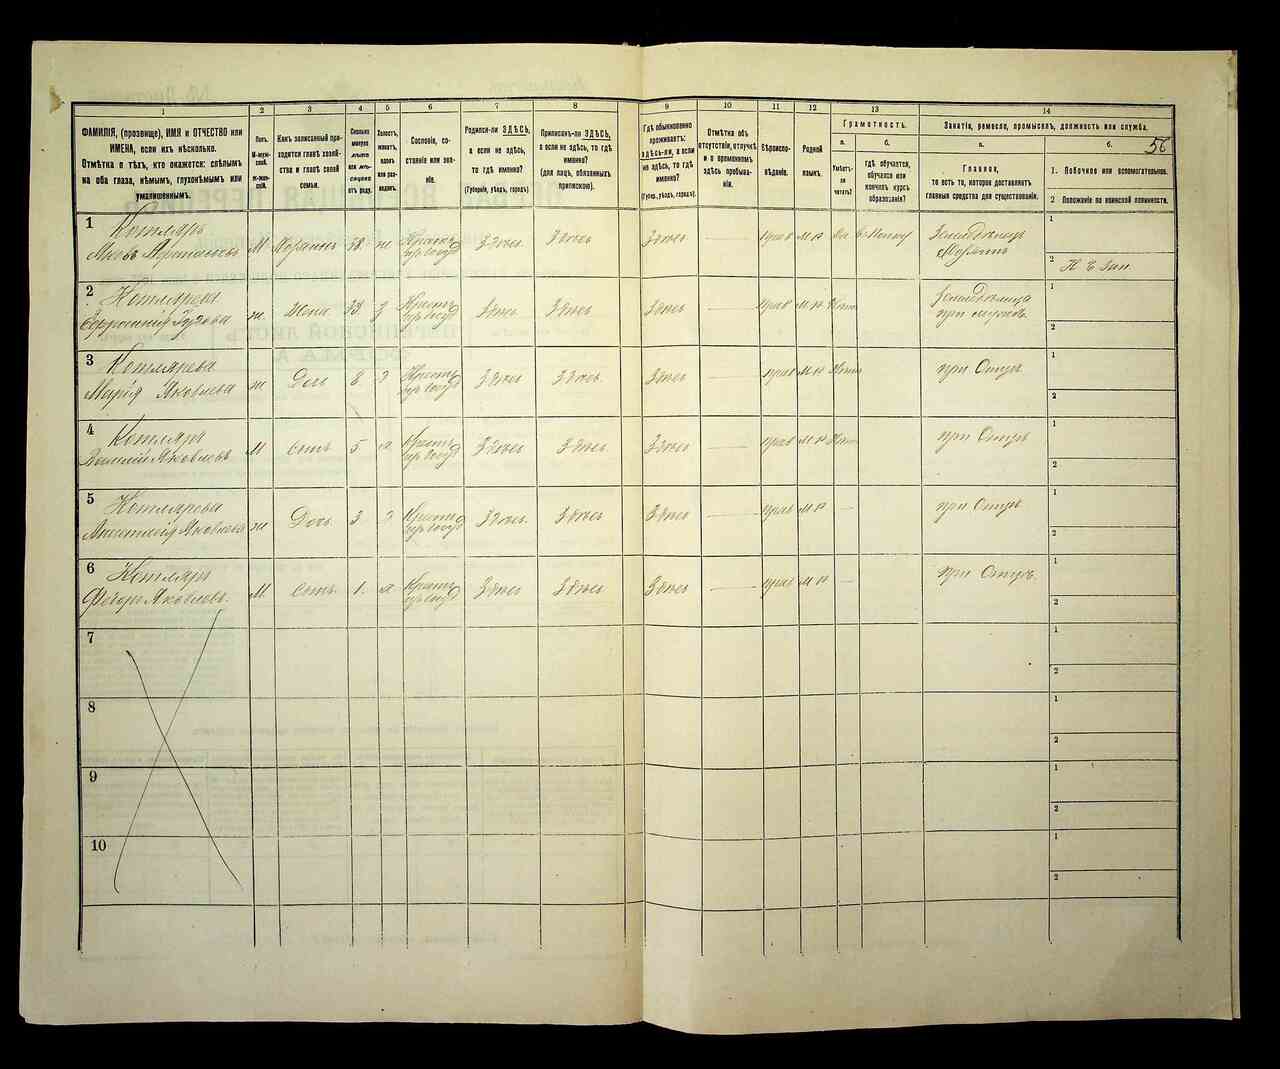 1 2 3 4 5 6 7 8 9 10 11 12 13 14
ФАМИЛІЯ, (прозвище), ИМЯ и ОТЧЕСТВО или
ИМЕНА, если ихъ нѣсколько.
Отмѣтка о тѣхъ, кто окажется: слѣпымъ
на оба глаза, нѣмымъ, глухонѣмымъ или
умалишеннымъ.
Полъ.
М-мужской.
Ж-женскій.
Какъ записанный приходится
главѣ хозяйства
и главѣ своей
семьи.
Сколько
минуло
лѣтъ
или мѣсяцевъ
отъ роду.
Холостъ,
женатъ,
вдовъ
или разведенъ.
Сословіе, состояніе
или званіе.
Родился-ли ЗДѢСЬ,
а если не здѣсь,
то гдѣ именно?
(Губернія, уѣздъ, городъ)
Приписанъ-ли ЗДѢСЬ,
а если не здѣсь, то гдѣ
именно?
(для лицъ, обязанныхъ
припискою).
Гдѣ обыкновенно
проживаетъ:
здѣсь-ли, а если
не здѣсь, то гдѣ
именно?
(Губер., уѣздъ, городъ)
Отмѣтка объ
отсутствіи, отлучкѣ
и о временномъ
здѣсь пребываніи.
Вѣроисповѣданіе.
Родной
языкъ.
Грамотность.
а. б.
Умѣетъ-ли
читать?
гдѣ обучается,
обучался или
кончилъ курсъ
образованія?
Занятіе, ремесло, промыселъ, должность или служба.
а. б.
56
Главное,
то есть то, которое доставляетъ
главныя средства для существованія.
1. Побочное или вспомогательное.
2 Положеніе по воинской повинности.
1 Котляръ
Яковъ М Хозяинъ 38 ж Крестъ Здѣсь Здѣсь Здѣсь — прав м р да
Земледѣлецъ
1
2
2 Котлярева
ж Жена 33 Крестъ Здѣсь Здѣсь Здѣсь — прав м р
Земледѣлица
при мужѣ
1
2
3 Котлярева
Марія Яковлева ж Дочь 8 Крестъ Здѣсь Здѣсь Здѣсь — прав м р
при Отцѣ
1
2
4 Котляръ
Василій Яковлевъ М сынъ 5 Крестъ Здѣсь Здѣсь Здѣсь — прав м р
при Отцѣ
1
2
5 Котлярева
Анастасія Яковлева ж Дочь 3 Крестъ Здѣсь Здѣсь Здѣсь — прав м р —
при Отцѣ
1
2
6 Котляръ
Федоръ Яковлевъ М сынъ 1 Крестъ Здѣсь Здѣсь Здѣсь — прав м р —
при Отцѣ
1
2
7
1
2
8
1
2
9
1
2
10
1
2